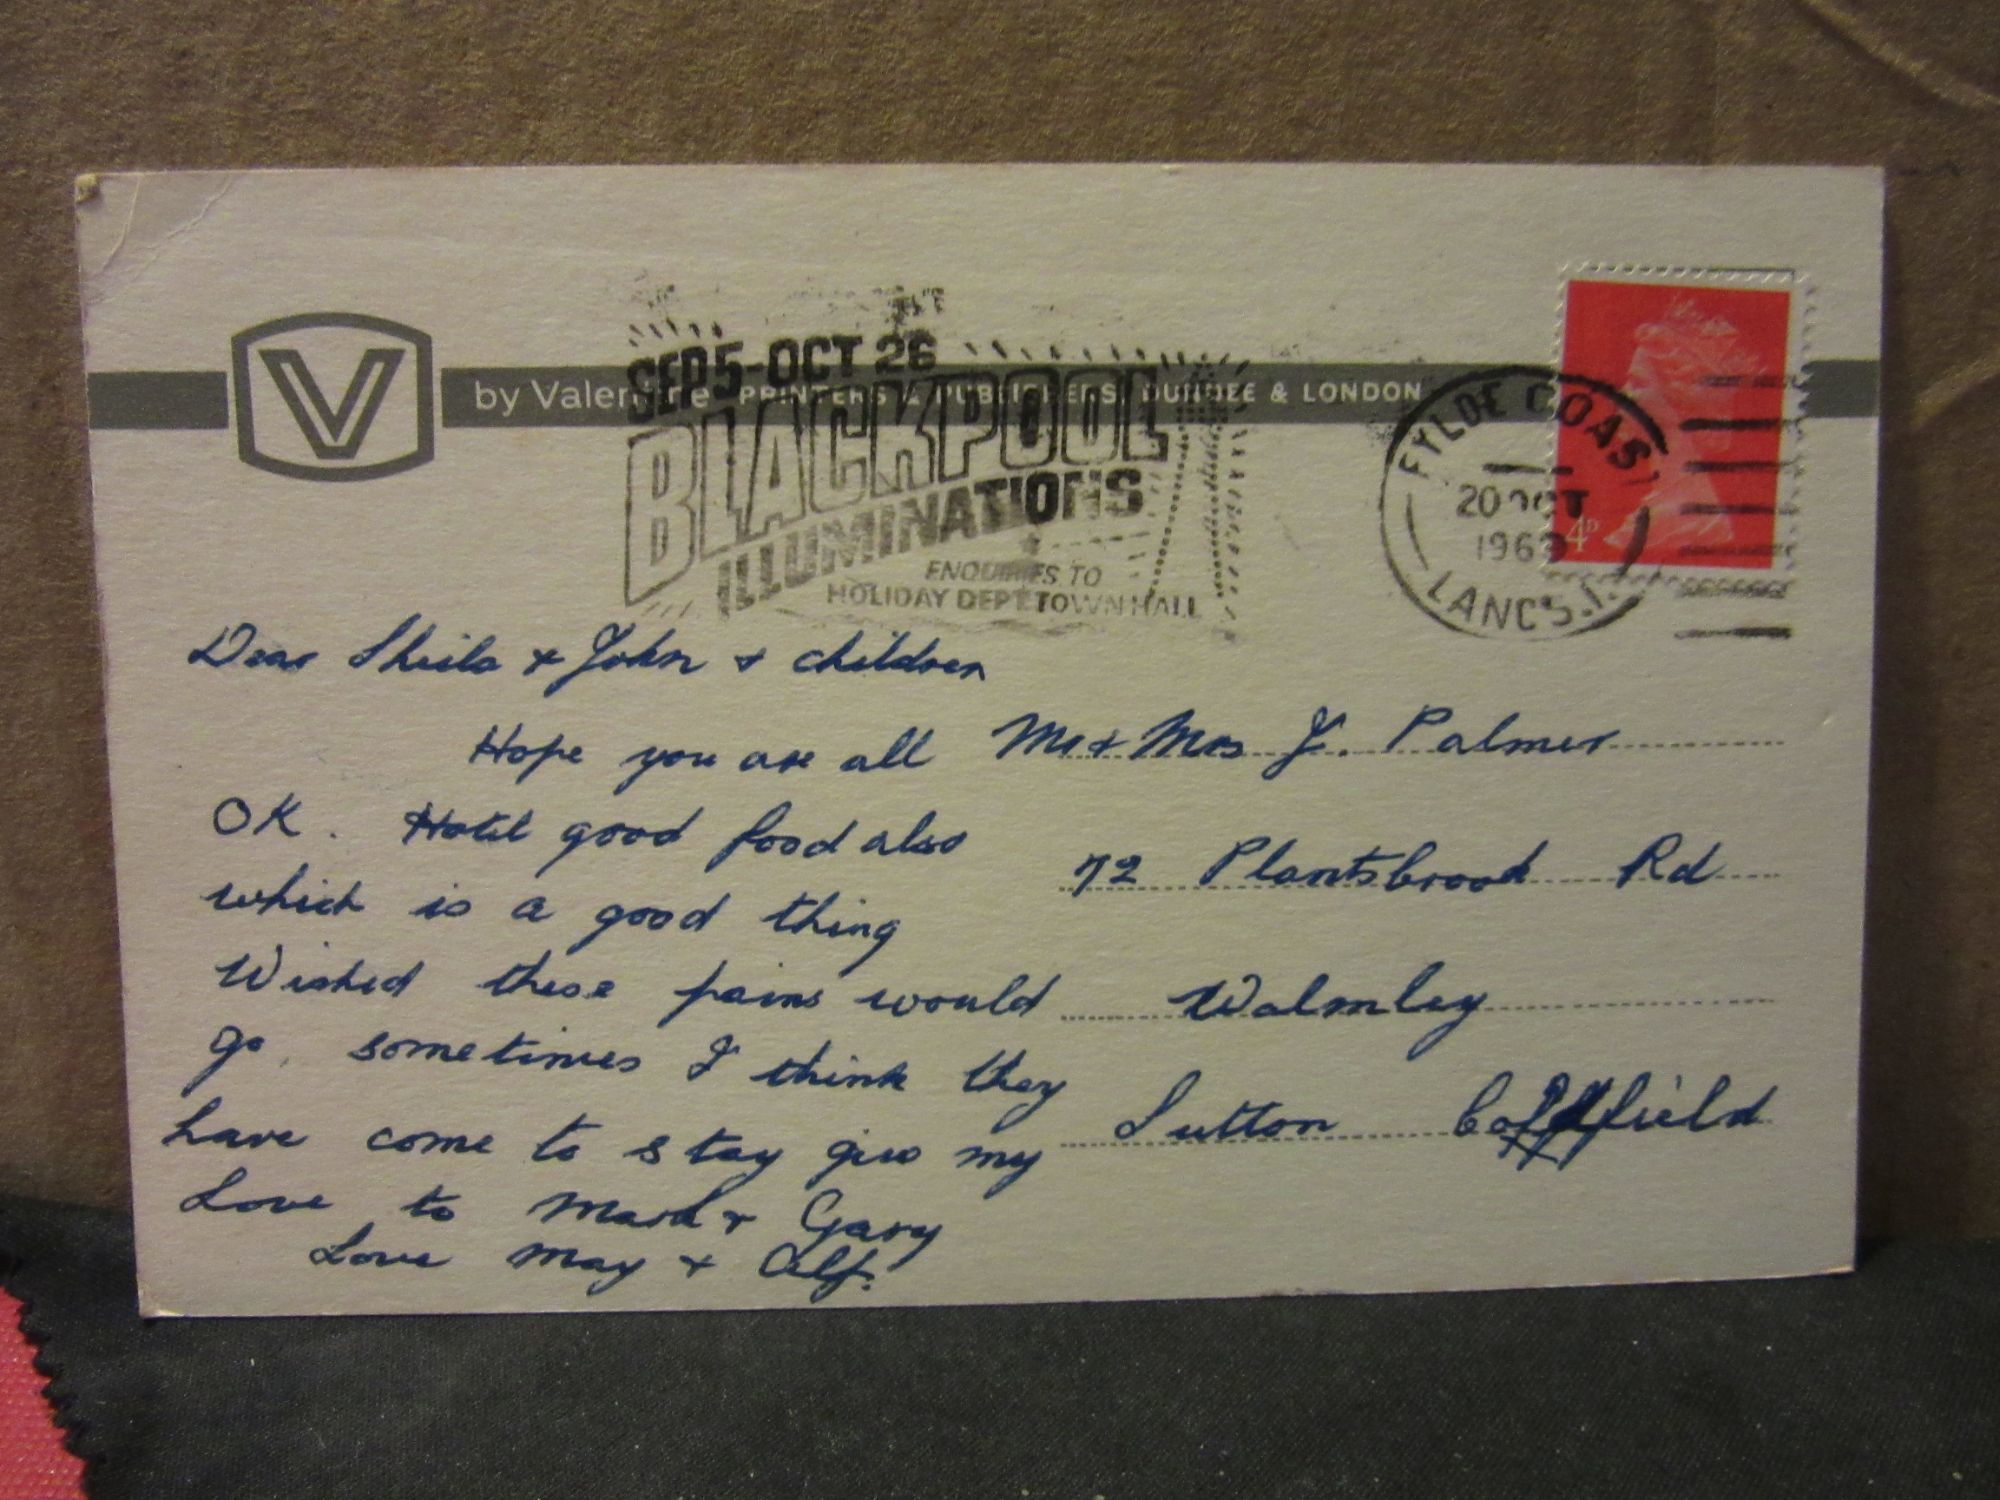 V
by Valentine PRINTERS & PUBLISHERS, DUNDEE & LONDON
SEP 5-OCT 26
BLACKPOOL
ILLUMINATIONS
ENQUIRIES TO
HOLIDAY DEPT TOWN HALL
FYLDE COAST
20 OCT
1969
LANCS.
4D
Dear Sheila & John & children
Hope you are all
OK. Hotel good food also
which is a good thing
Wished these pains would
go, sometimes I think they
have come to stay give my
Love to Mark & Gary
Love May & Alf.
Mr & Mrs J. Palmer
72 Plantsbrook Rd
Walmley
Sutton Coldfield